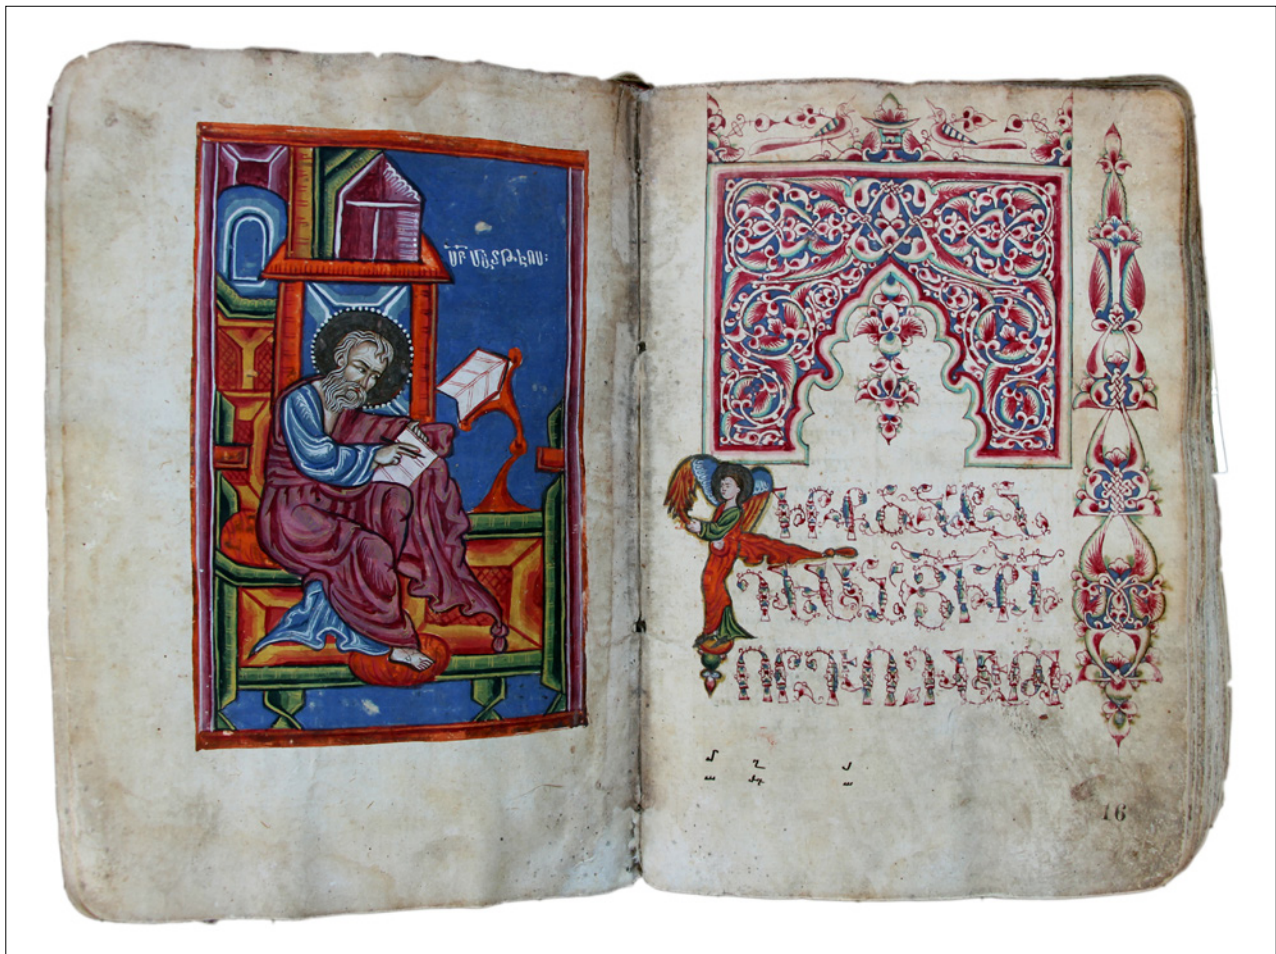 ՍԲ ՄԱՏԹԷՈՍ։
ԳԻՐՔ ԾՆՆ
ԴԵԱՆ ՅԻ ՔԻ
ՈՐԴՒՈՅ
16